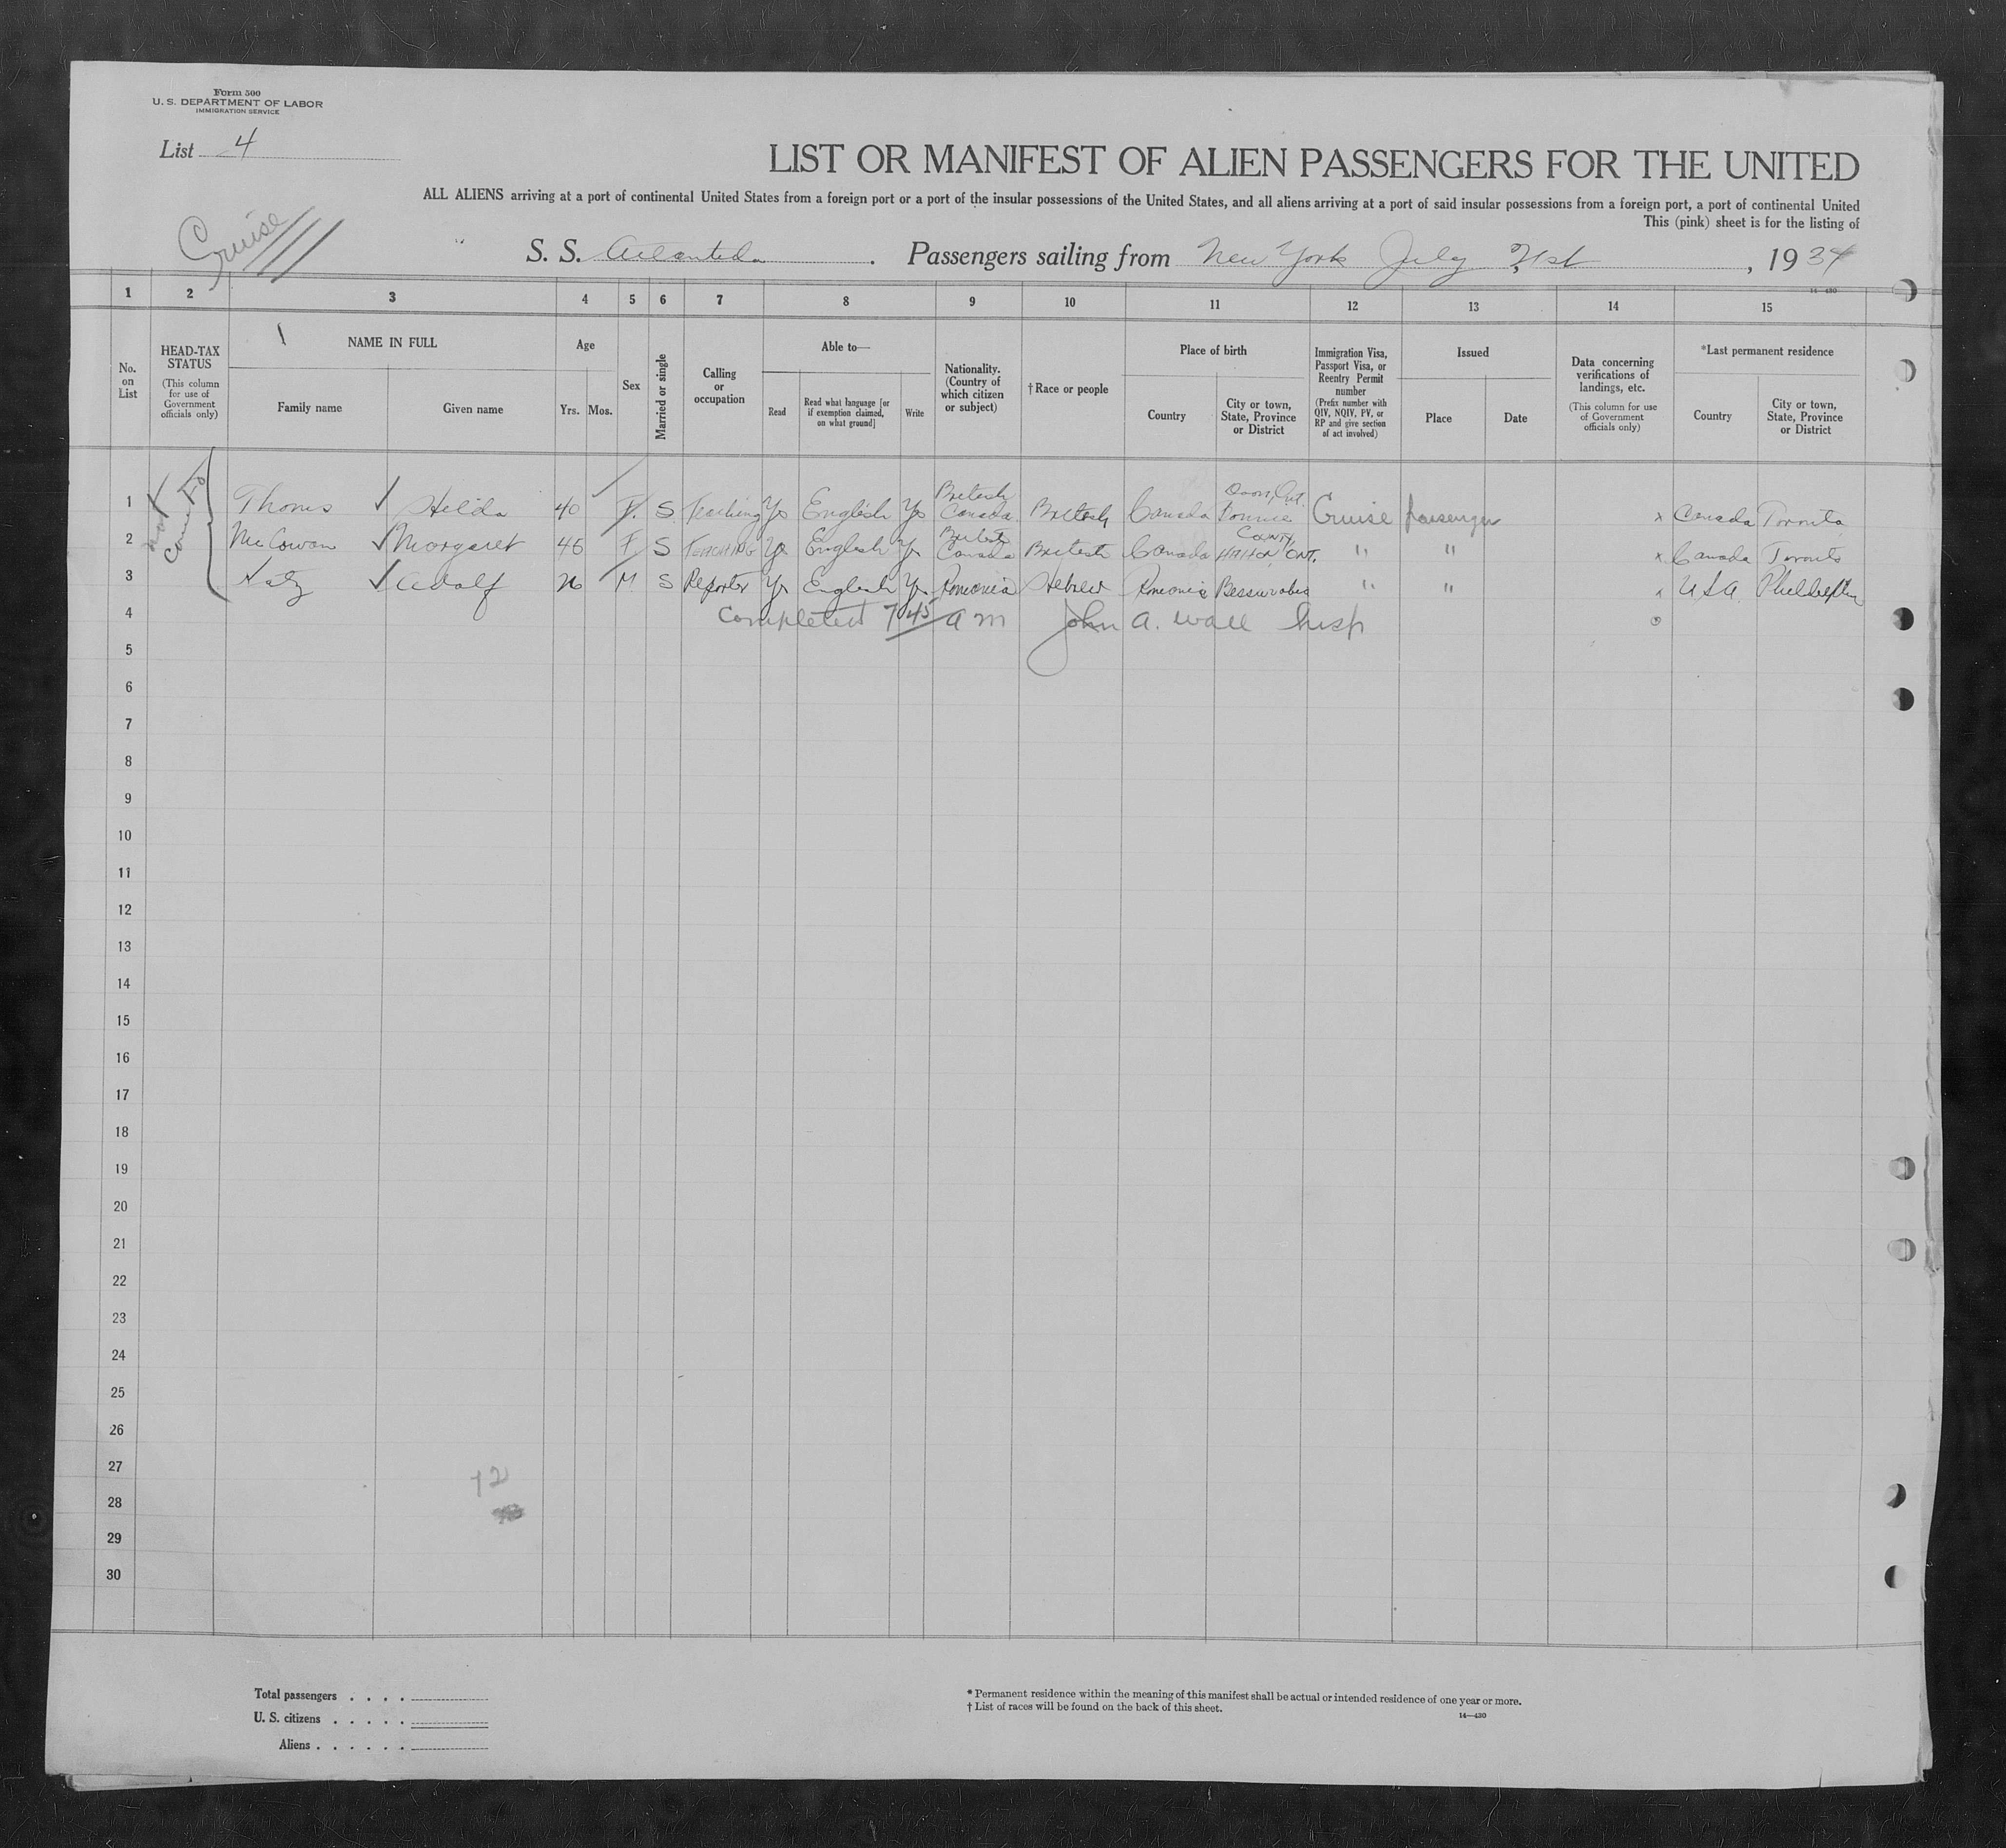 Form 500
U. S. DEPARTMENT OF LABOR
IMMIGRATION SERVICE
List 4
LIST OR MANIFEST OF ALIEN PASSENGERS FOR THE UNITED
ALL ALIENS arriving at a port of continental United States from a foreign port or a port of the insular possessions of the United States, and all aliens arriving at a port of said insular possessions from a foreign port, a port of continental United
This (pink) sheet is for the listing of
Cruise
S. S. Passengers sailing from New York July 21st, 1934
14-430
1 2 3 4 5 6 7 8 9 10 11 12 13 14 15
No. on List
HEAD-TAX STATUS (This column for use of Government officials only)
NAME IN FULL
Family name Given name
Age
Yrs. Mos.
Sex
Married or single
Calling or occupation
Able to—
Read Read what language [or if exemption claimed, on what ground] Write
Nationality. (Country of which citizen or subject)
†Race or people
Place of birth
Country City or town, State, Province or District
Immigration Visa, Passport Visa, or Reentry Permit number (Prefix number with QIV, NQIV, PV, or RP and give section of act involved)
Issued
Place Date
Data concerning verifications of landings, etc. (This column for use of Government officials only)
*Last permanent residence
Country City or town, State, Province or District
not
1 Thoms Hilda 40 F. S Teaching Yes English Yes British Canada British Canada Doon, Ont. Cruise passenger x Canada Toronto
2 McCowan Margaret 46 F S TEACHING Yes English Yes British Canada British Canada HALTON COUNTY, ONT. " " x Canada Toronto
3 Katz Adolf 26 M. S Reporter Yes English Yes Romania Hebrew Romania Bessarabia " " x USA Philadelphia
4 Completed 7 45 am John A. Wall Insp
5
6
7
8
9
10
11
12
13
14
15
16
17
18
19
20
21
22
23
24
25
26
27
12
28
29
30
Total passengers . . . .
U. S. citizens . . . . .
Aliens . . . . . .
* Permanent residence within the meaning of this manifest shall be actual or intended residence of one year or more.
† List of races will be found on the back of this sheet.
14—430